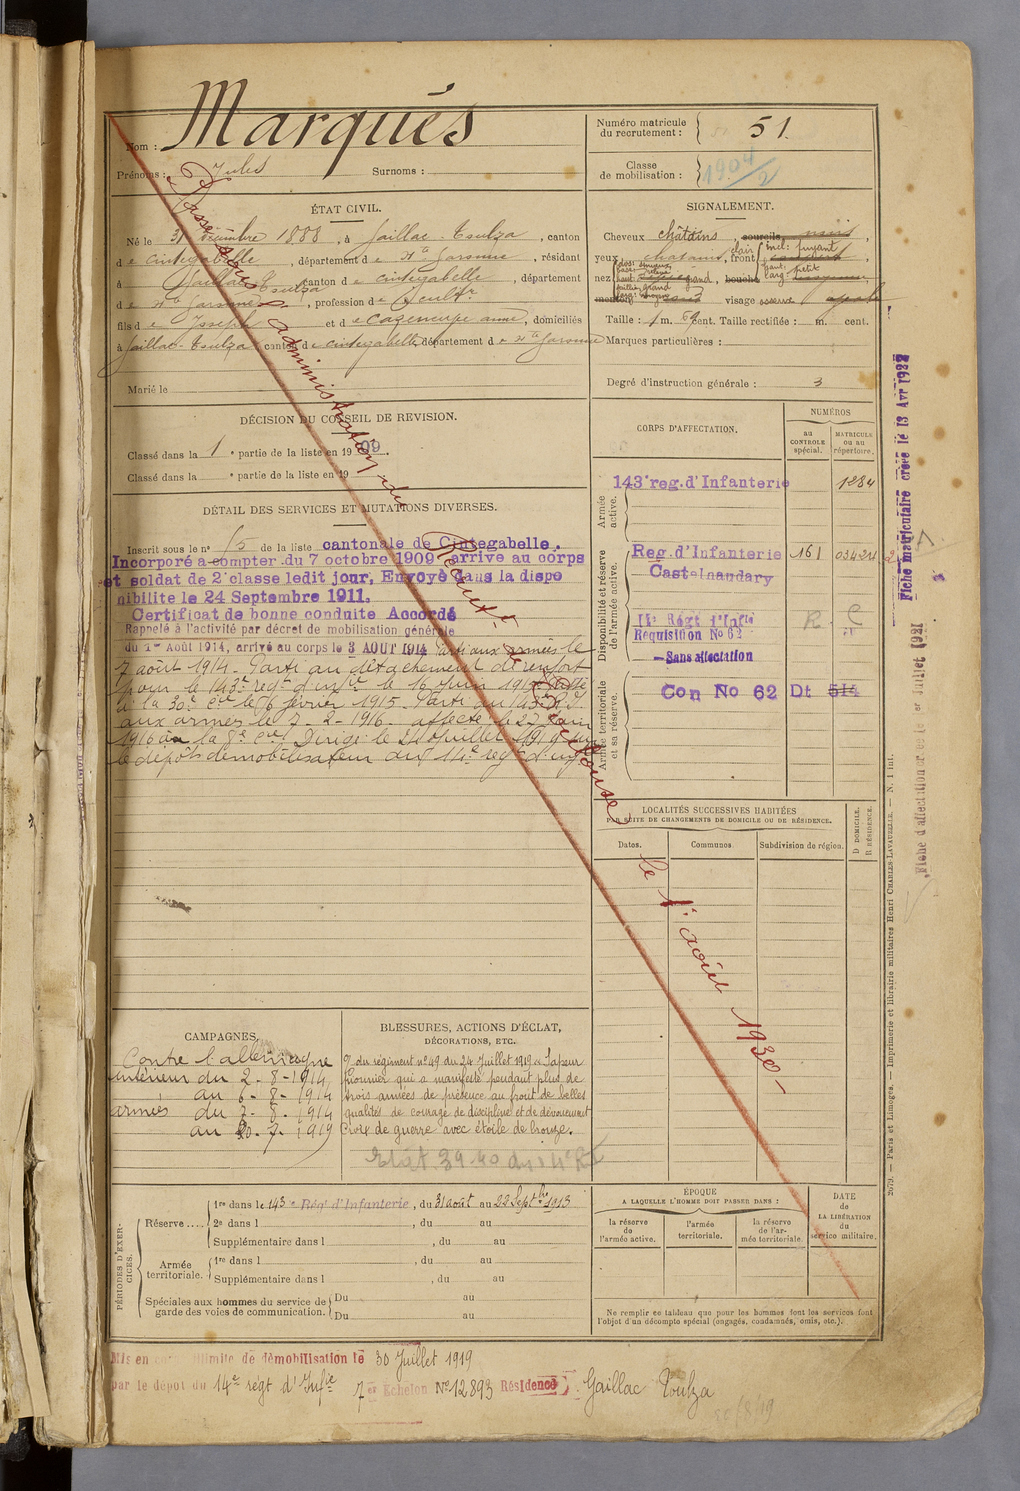 Nom : Marqués
Prénoms : Jules Surnoms :
Numéro matricule du recrutement : 51.
Classe de mobilisation : 1904/2
ÉTAT CIVIL.
Né le 31 décembre 1888, à Gaillac-Toulza, canton
de Cintegabelle, département de Hte Garonne, résidant
à Gaillac Toulza canton de Cintegabelle, département
de Hte Garonne, profession de Cultr
fils de Joseph et de Cazeneuve anne, domiciliés
à Gaillac-Toulza canton de Cintegabelle département de Hte Garonne
Marié le
SIGNALEMENT.
Cheveux châtains, sourcils
yeux chatains clair, front incl: fuyant
nez grand, bouche haut: petit
menton visage osseux
Taille : 1 m. 69 cent. Taille rectifiée : m. cent.
Marques particulières :
Degré d'instruction générale : 3
DÉCISION DU CONSEIL DE REVISION.
Classé dans la 1e partie de la liste en 1909
Classé dans la e partie de la liste en 19
DÉTAIL DES SERVICES ET MUTATIONS DIVERSES.
Inscrit sous le n° 15 de la liste cantonale de Cintegabelle.
Incorporé à compter du 7 octobre 1909 arrivé au corps
et soldat de 2e classe ledit jour, Envoyé dans la dispo
nibilité le 24 Septembre 1911.
Certificat de bonne conduite Accordé
Rappelé à l'activité par décret de mobilisation générale
du 1er Août 1914, arrivé au corps le 3 AOUT 1914 Parti aux armées le
7 août 1914. Parti au détachement de renfort
pour le 143e regt d'infie le 16 Juin 1915 Passé
à la 30e Cie le 6 février 1915. Parti du 143e R.I.
aux armées le 7-2-1916. affecté le 27 Juin
1916 à la 8e Cie. Dirigé le 24 Juillet 1919 sur
le dépôt démobilisateur du 14e regt d'inf.
CORPS D'AFFECTATION.
NUMÉROS
au CONTROLE spécial.
MATRICULE ou au répertoire.
Armée active.
143e reg. d'Infanterie 1284
Disponibilité et réserve de l'armée active.
Reg. d'Infanterie 161 03424
Castelnaudary
Régt d'Infie R. C
Requisition No 62
Sans affectation
Armée territoriale et sa réserve.
Con No 62 Dt 514
Passé sous l'administration du Recrutt de Toulouse
le 1er août 1930
LOCALITÉS SUCCESSIVES HABITÉES
PAR SUITE DE CHANGEMENTS DE DOMICILE OU DE RÉSIDENCE.
Dates. Communes. Subdivision de région. D DOMICILE. R RÉSIDENCE.
CAMPAGNES.
Contre l'allemagne
intérieur du 2-8-1914
au 6-8-1914
armées du 7-8-1914
au 20-7-1919
BLESSURES, ACTIONS D'ÉCLAT,
DÉCORATIONS, ETC.
O/ du régiment n° 49 du 24 Juillet 1919 « Sapeur
pionnier qui a manifesté pendant plus de
trois années de présence au front de belles
qualités de courage de discipline et de dévouement
Croix de guerre avec étoile de bronze.
PÉRIODES D'EXERCICES.
Réserve....
1re dans le 143e Régt d'Infanterie, du 31 août au 22 Septbre 1913
2e dans l , du au
Supplémentaire dans l , du au
Armée territoriale.
1re dans l , du au
Supplémentaire dans l , du au
Spéciales aux hommes du service de garde des voies de communication.
Du au
Du au
ÉPOQUE
A LAQUELLE L'HOMME DOIT PASSER DANS :
la réserve de l'armée active.
l'armée territoriale.
la réserve de l'armée territoriale.
DATE de LA LIBÉRATION du service militaire.
Ne remplir ce tableau que pour les hommes dont les services font
l'objet d'un décompte spécial (engagés, condamnés, omis, etc.).
Mis en congé illimité de démobilisation le 30 Juillet 1919
par le dépôt du 14e régt d'Infie 7er Echelon No 12893 Résidence Gaillac Toulza
Fiche matriculaire créée le 13 Avr 1932
Fiche d'affectation créée le 1er Juillet 1921
2079. — Paris et Limoges. — Imprimerie et librairie militaires Henri CHARLES-LAVAUZELLE. — N. 1 int.